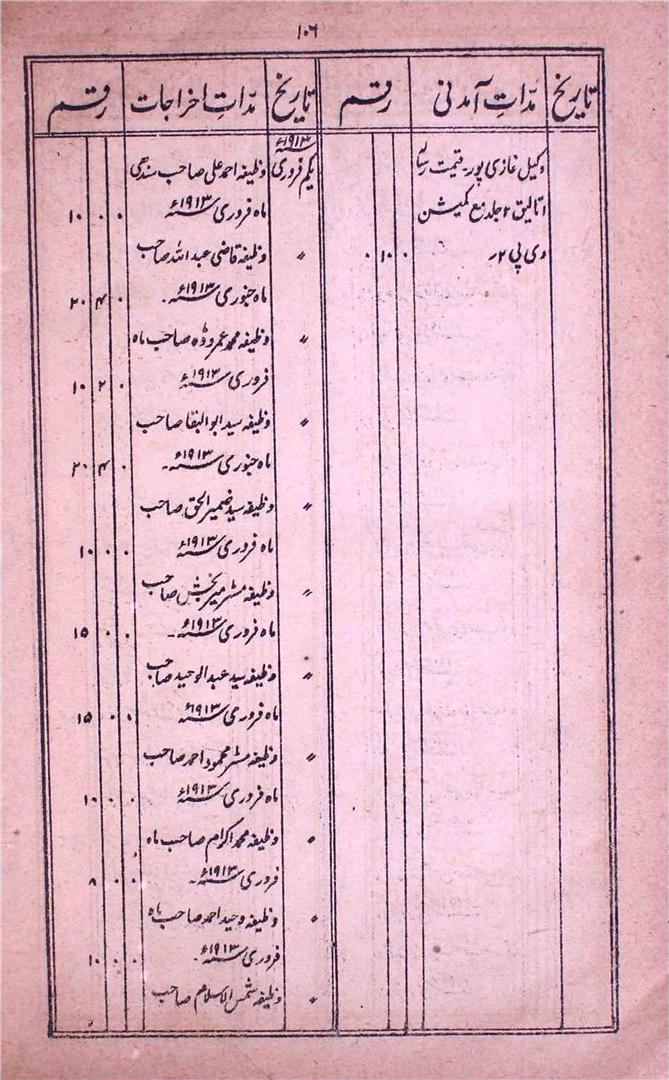 ۱۰۶
تاریخ مدّاتِ آمدنی رقم تاریخ مدّاتِ اخراجات رقم
وکیل غازی پور۔ قیمت
اتالیق ۲ جلد مع کمیشن
وی پی ۲؍ ۰ ۱۰ ۰
۱۹۱۳ء
یکم فروری وظیفہ احمد علی صاحب سندھی
ماہ فروری ۱۹۱۳ء ۱۰ ۰ ۰
〃 وظیفہ قاضی عبد اللہ صاحب
ماہ جنوری ۱۹۱۳ء۔ ۲۰ ۴ ۰
〃 وظیفہ محمد عمر وڈہ صاحب ماہ
فروری ۱۹۱۳ء ۱۰ ۲ ۰
〃 وظیفہ سید ابو البقا صاحب
ماہ جنوری ۱۹۱۳ء۔ ۲۰ ۴ ۰
〃 وظیفہ سید ضمیر الحق صاحب
ماہ فروری ۱۹۱۳ء ۱۰ ۰ ۰
〃 وظیفہ مسٹر میر بخش صاحب
ماہ فروری ۱۹۱۳ء۔ ۱۵ ۰ ۰
〃 وظیفہ سید عبد الوحید صاحب
ماہ فروری ۱۹۱۳ء ۱۵ ۰ ۰
〃 وظیفہ مسٹر محمود احمد صاحب
ماہ فروری ۱۹۱۳ء ۱۰ ۰ ۰
〃 وظیفہ محمد اکرام صاحب ماہ
فروری ۱۹۱۳ء۔ ۸ ۰ ۰
〃 وظیفہ وحید احمد صاحب ماہ
فروری ۱۹۱۳ء۔ ۱۰ ۰ ۰
〃 وظیفہ شمس الاسلام صاحب